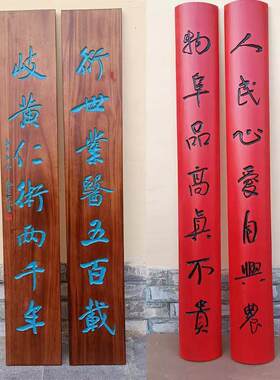 衍世業醫五百載
岐黃仁術兩千年
人民心愛自興農
物阜品高真不貴